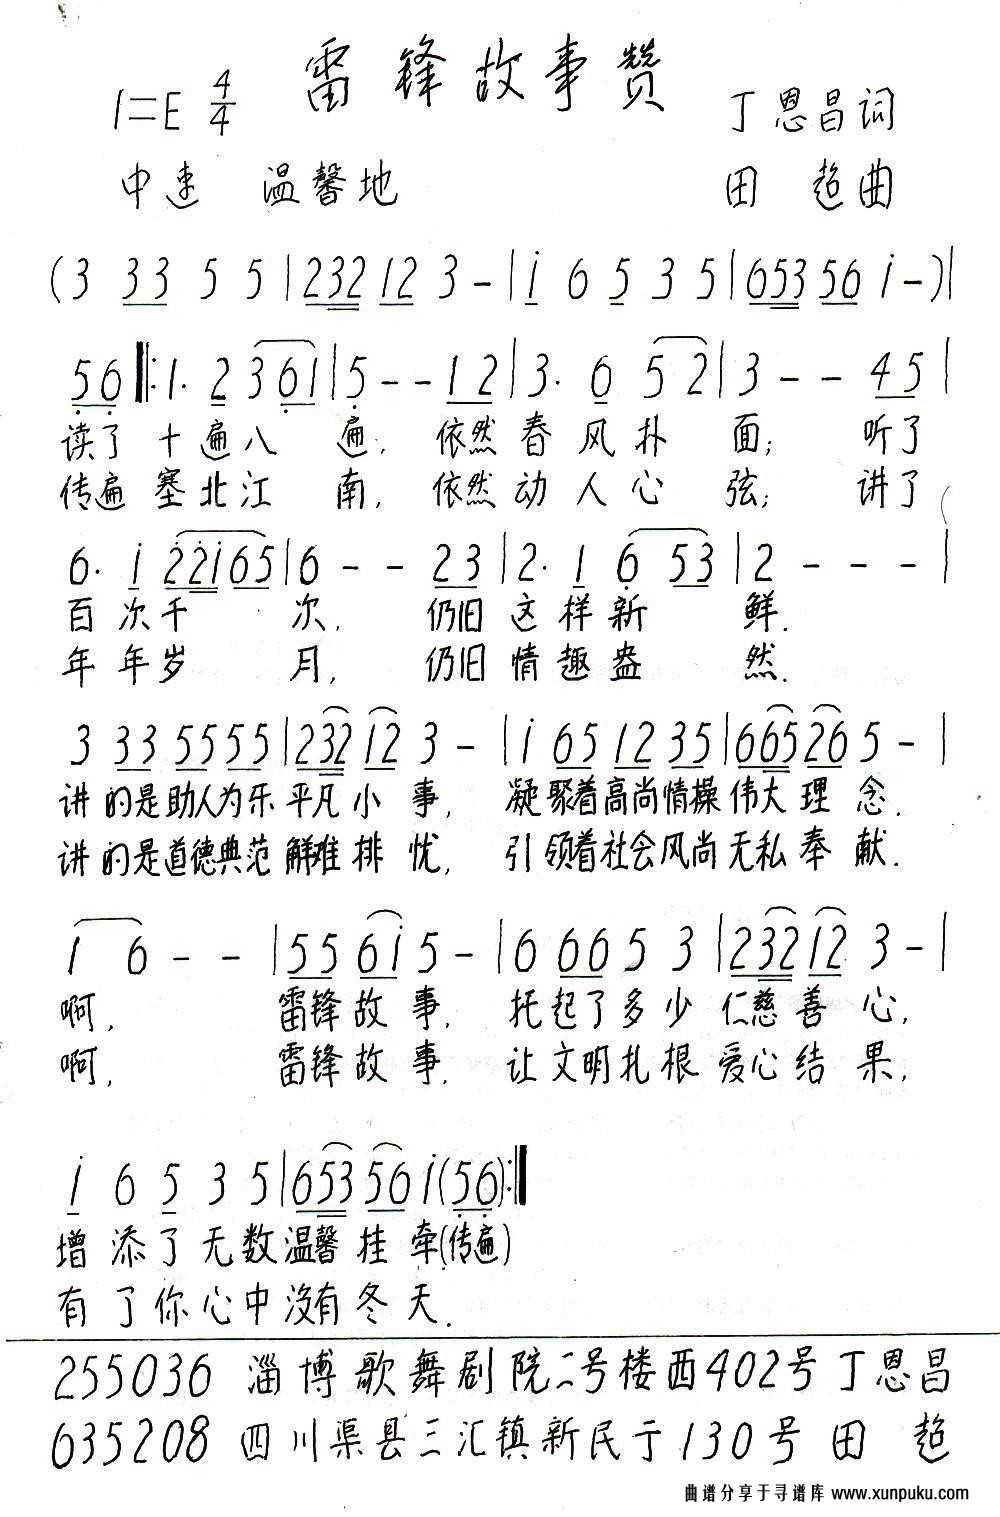 雷锋故事赞
1=E 4/4 丁恩昌词
中速 温馨地 田 超曲
(3 33 5 5 | 232 12 3 - | i 6 5 3 5 | 653 56 i - ) |
56 ‖: 1. 2 3 61 | 5 - - 12 | 3. 6 5 2 | 3 - - 45 |
读了 十遍八 遍, 依然春风扑 面; 听了
传遍 塞北江 南, 依然动人心 弦; 讲了
6. i 22i65 | 6 - - 23 | 2. 1 6 53 | 2 - - - |
百次千 次, 仍旧这样新 鲜.
年年岁 月, 仍旧情趣盎 然.
3 33 5555 | 232 12 3 - | i 65 12 35 | 665 26 5 - |
讲的是助人为乐平凡小事, 凝聚着高尚情操伟大理念.
讲的是道德典范解难排忧, 引领着社会风尚无私奉献.
1 6 - - | 55 6i 5 - | 6 66 5 3 | 232 12 3 - |
啊, 雷锋故事, 托起了多少仁慈善心,
啊, 雷锋故事, 让文明扎根爱心结果,
i 6 5 3 5 | 653 56 i (56) :‖
增添了无数温馨挂牵(传遍)
有了你心中没有冬天.
255036 淄博歌舞剧院二号楼西402号丁恩昌
635208 四川渠县三汇镇新民于130号田 超
曲谱分享于寻谱库 www.xunpuku.com